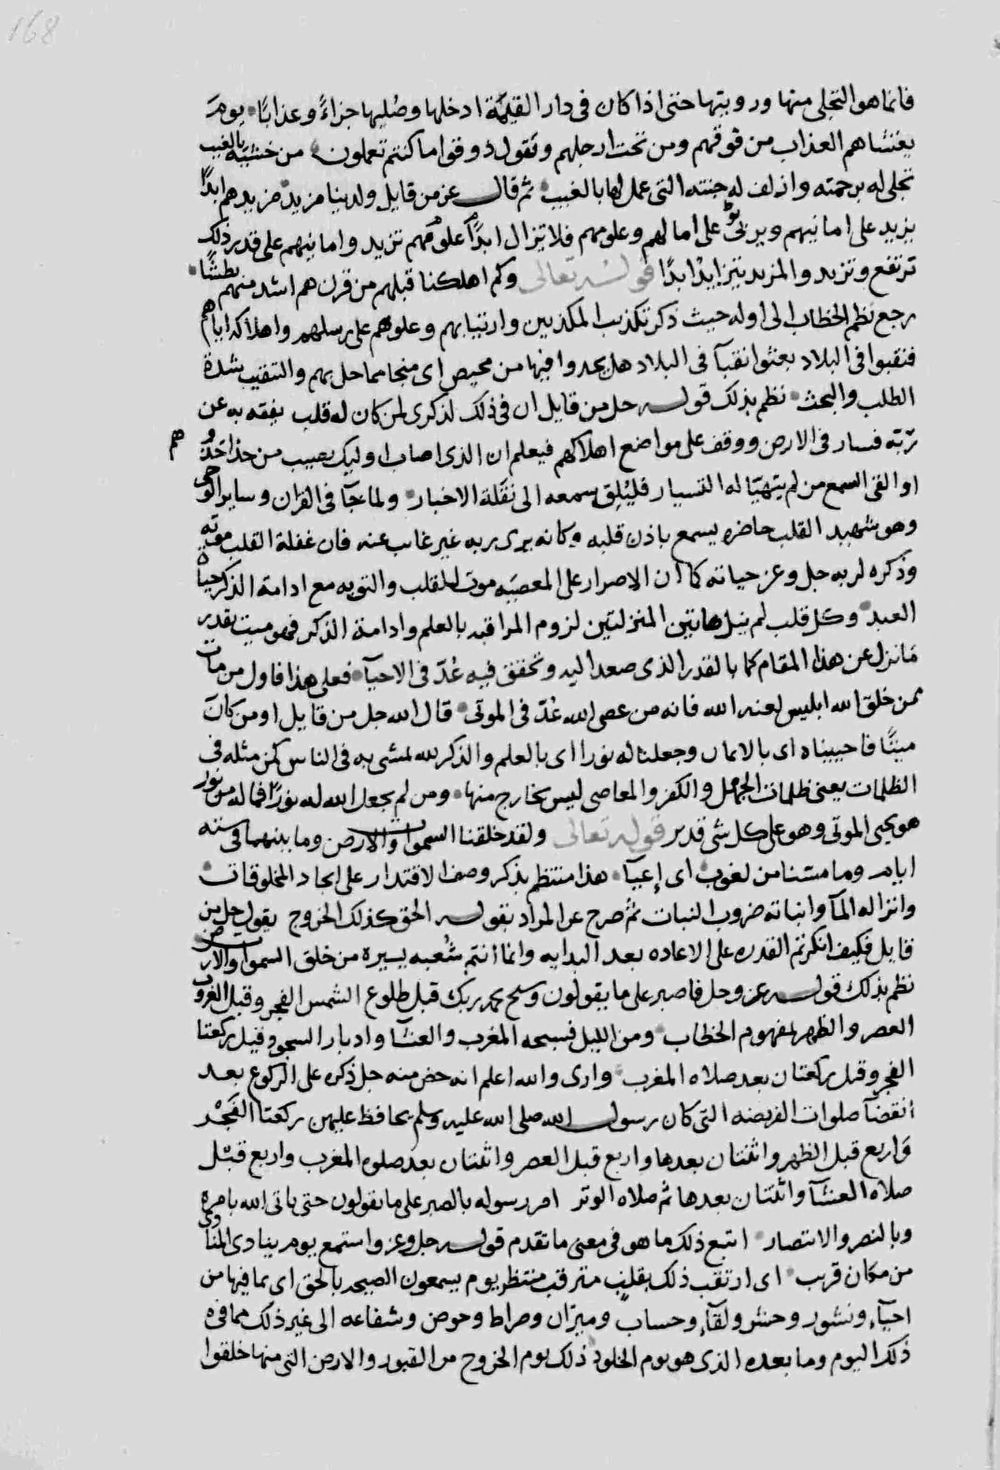 168
فانما هو التجلى منها ورويتها حتى اذا كان فى دار القيمة ادخلها وصليها جزاءً وعذابًا يوم
يغشاهم العذاب من فوقهم ومن تحت ارجلهم ونقول ذوقوا ما كنتم تعملون من خشيه بالغيب
تجلى له برحمته وازلف له جنته التى عمل لها بالغيب ثم قال عز من قايل ولدينا مزيد مزيدهم ابدًا
يزيد على امانيهم ويربى على امالهم وعلومهم فلا تزال ابدًا علومهم تزيد وامانيهم على قدر ذلك
ترتفع وتزيد والمزيد يتزايد ابدًا قوله تعالى وكم اهلكنا قبلهم من قرن هم اشد منهم بطشًا
رجع نظم الخطاب الى اوله حيث ذكر تكذيب المكذبين وارتيابهم وعلوهم على رسلهم واهلاكه اياهم
فنقبوا فى البلاد بعثوا نقبآ فى البلاد هل يجدوا فيها من محيص اى منجا مما حل بهم والتنقيب شدة
الطلب والبحث نظم بذلك قوله جل من قايل ان فى ذلك لذكرى لمن كان له قلب يفقه به عن
ربه فسار فى الارض ووقف على مواضع اهلاكهم فيعلم ان الذى اصاب اوليك يصيب من حذا حذوهم
او القى السمع من لم يتهيّا له التسيار فليُلق سمعه الى نقلة الاخبار ولما جآ فى القران وساير الوحى
وهو شهيد القلب حاضره يسمع باذن قلبه وكانه يرى ربه غير غايب عنه فان غفلة القلب موته
وذكره لربه جل وعز حياته كما ان الاصرار على المعصيه موت للقلب والتوبه مع ادامة الذكر حياة
العبد وكل قلب لم ينل هاتين المنزلتين لزوم المراقبه بالعلم وادامة الذكر فهو ميت بقدر
ما نزل عن هذا المقام كما بالقدر الذى صعد اليه وتحقق فيه عُدّ فى الاحيآ فعلى هذا فاول من مات
ممن خلق الله ابليس لعنه الله فانه من عصى الله عُدّ فى الموتى قال الله جل من قايل اومن كان
ميتًا فاحييناه اى بالايمان وجعلنا له نورا اى بالعلم والذكر لله يمشى به فى الناس كمن مثله فى
الظلمات يعنى ظلمات الجهل والكفر والمعاصى ليس بخارج منها ومن لم يجعل الله له نورًا فما له من نور
هو يحيى الموتى وهو على كل شى قدير قوله تعالى ولقد خلقنا السموات والارض وما بينهما فى سته
ايام وما مسّنا من لغوب اى إعيآ هذا منتظم بذكر وصف الاقتدار على ايجاد المخلوقات
وانزاله المآ وانباته ضروب النبات ثم صرح عن المراد بقوله الحق كذلك الخروج يقول جل من
قايل فكيف انكرتم القدره على الاعاده بعد البدايه وانما انتم شعبه يسيرة من خلق السموات والارض
نظم بذلك قوله عز وجل فاصبر على ما يقولون وسبح بحمد ربك قبل طلوع الشمس الفجر وقبل الغروب
العصر والظهر لمفهوم الخطاب ومن الليل فسبحه المغرب والعشآ وادبار السجود قيل ركعتا
الفجر وقيل ركعتان بعد صلاه المغرب وارى والله اعلم انه حض منه جل ذكره على الركوع بعد
انقضآ صلوات الفريضه التى كان رسول الله صلى الله عليه وسلم يحافظ عليهن ركعتا الفجر
واربع قبل الظهر واثنتان بعدها واربع قبل العصر واثنتان بعد صلوه المغرب واربع قبل
صلاه العشآ واثنتان بعدها ثم صلاه الوتر امر رسوله بالصبر على ما يقولون حتى ياتى الله بامره
وبالنصر والانتصار اتبع ذلك ما هو فى معنى ما تقدم قوله جل وعز واستمع يوم ينادى المنادى
من مكان قريب اى ارتقب ذلك بقلب مترقب منتظر يوم يسمعون الصيحه بالحق اى بما فيها من
احيآء ونشور وحشر ولقآء وحساب وميزان وصراط وحوض وشفاعه الى غير ذلك مما فى
ذلك اليوم وما بعده الذى هو يوم الخلود ذلك يوم الخروج من القبور والارض التى منها خلقوا